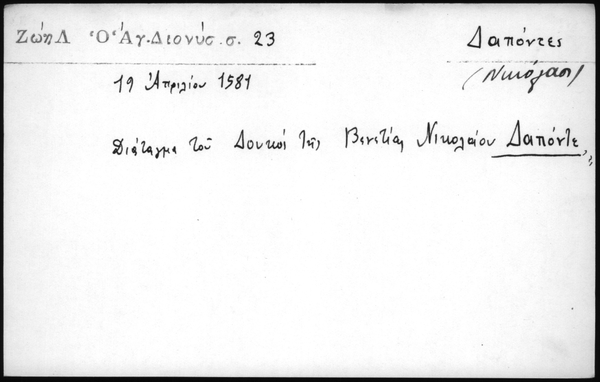 Ζώη Λ Ὁ Ἅγ. Διονύσ. σ. 23
Δαπόντες
(Νικόλαος)
19 Ἀπριλίου 1581
Διάταγμα τοῦ Δουκός τῆς Βενετίας Νικολάου Δαπόντε,,